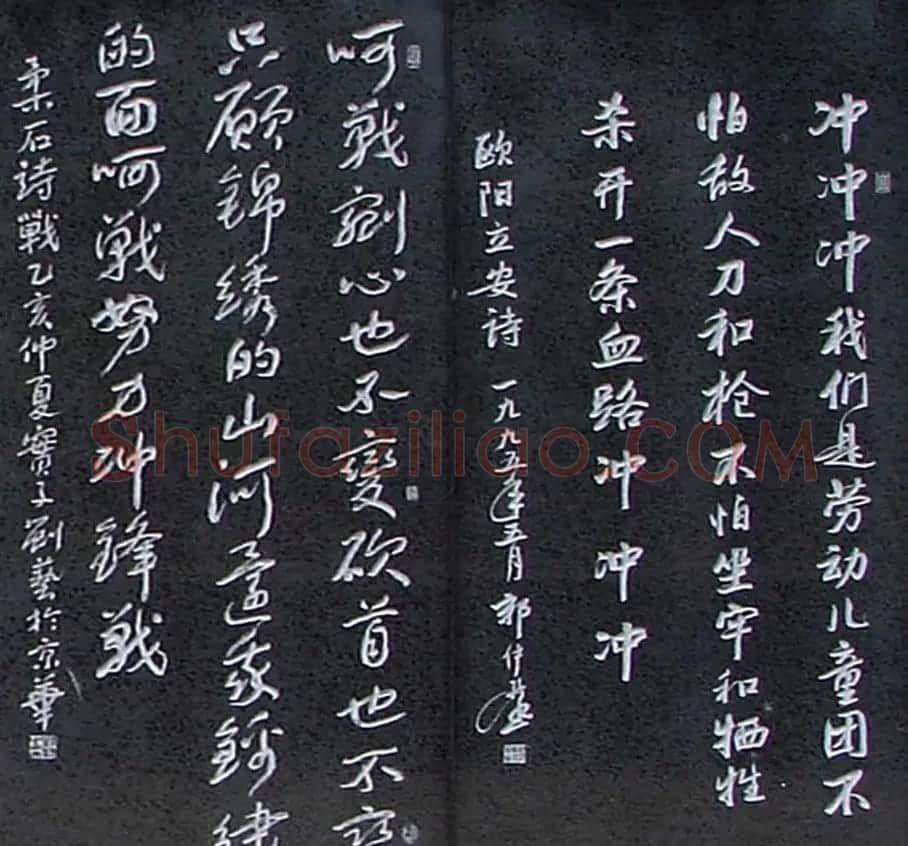 冲冲冲我们是劳动儿童团不
怕敌人刀和枪不怕坐牢和牺牲
杀开一条血路冲冲冲
欧阳立安诗 一九九五年五月 郭仲选
呵戰剜心也不變砍首也不
只願錦绣的山河還我錦
的面呵戰努力冲鋒戰
柔石詩戰乙亥仲夏 劉藝於京華
Shufaziliao.COM